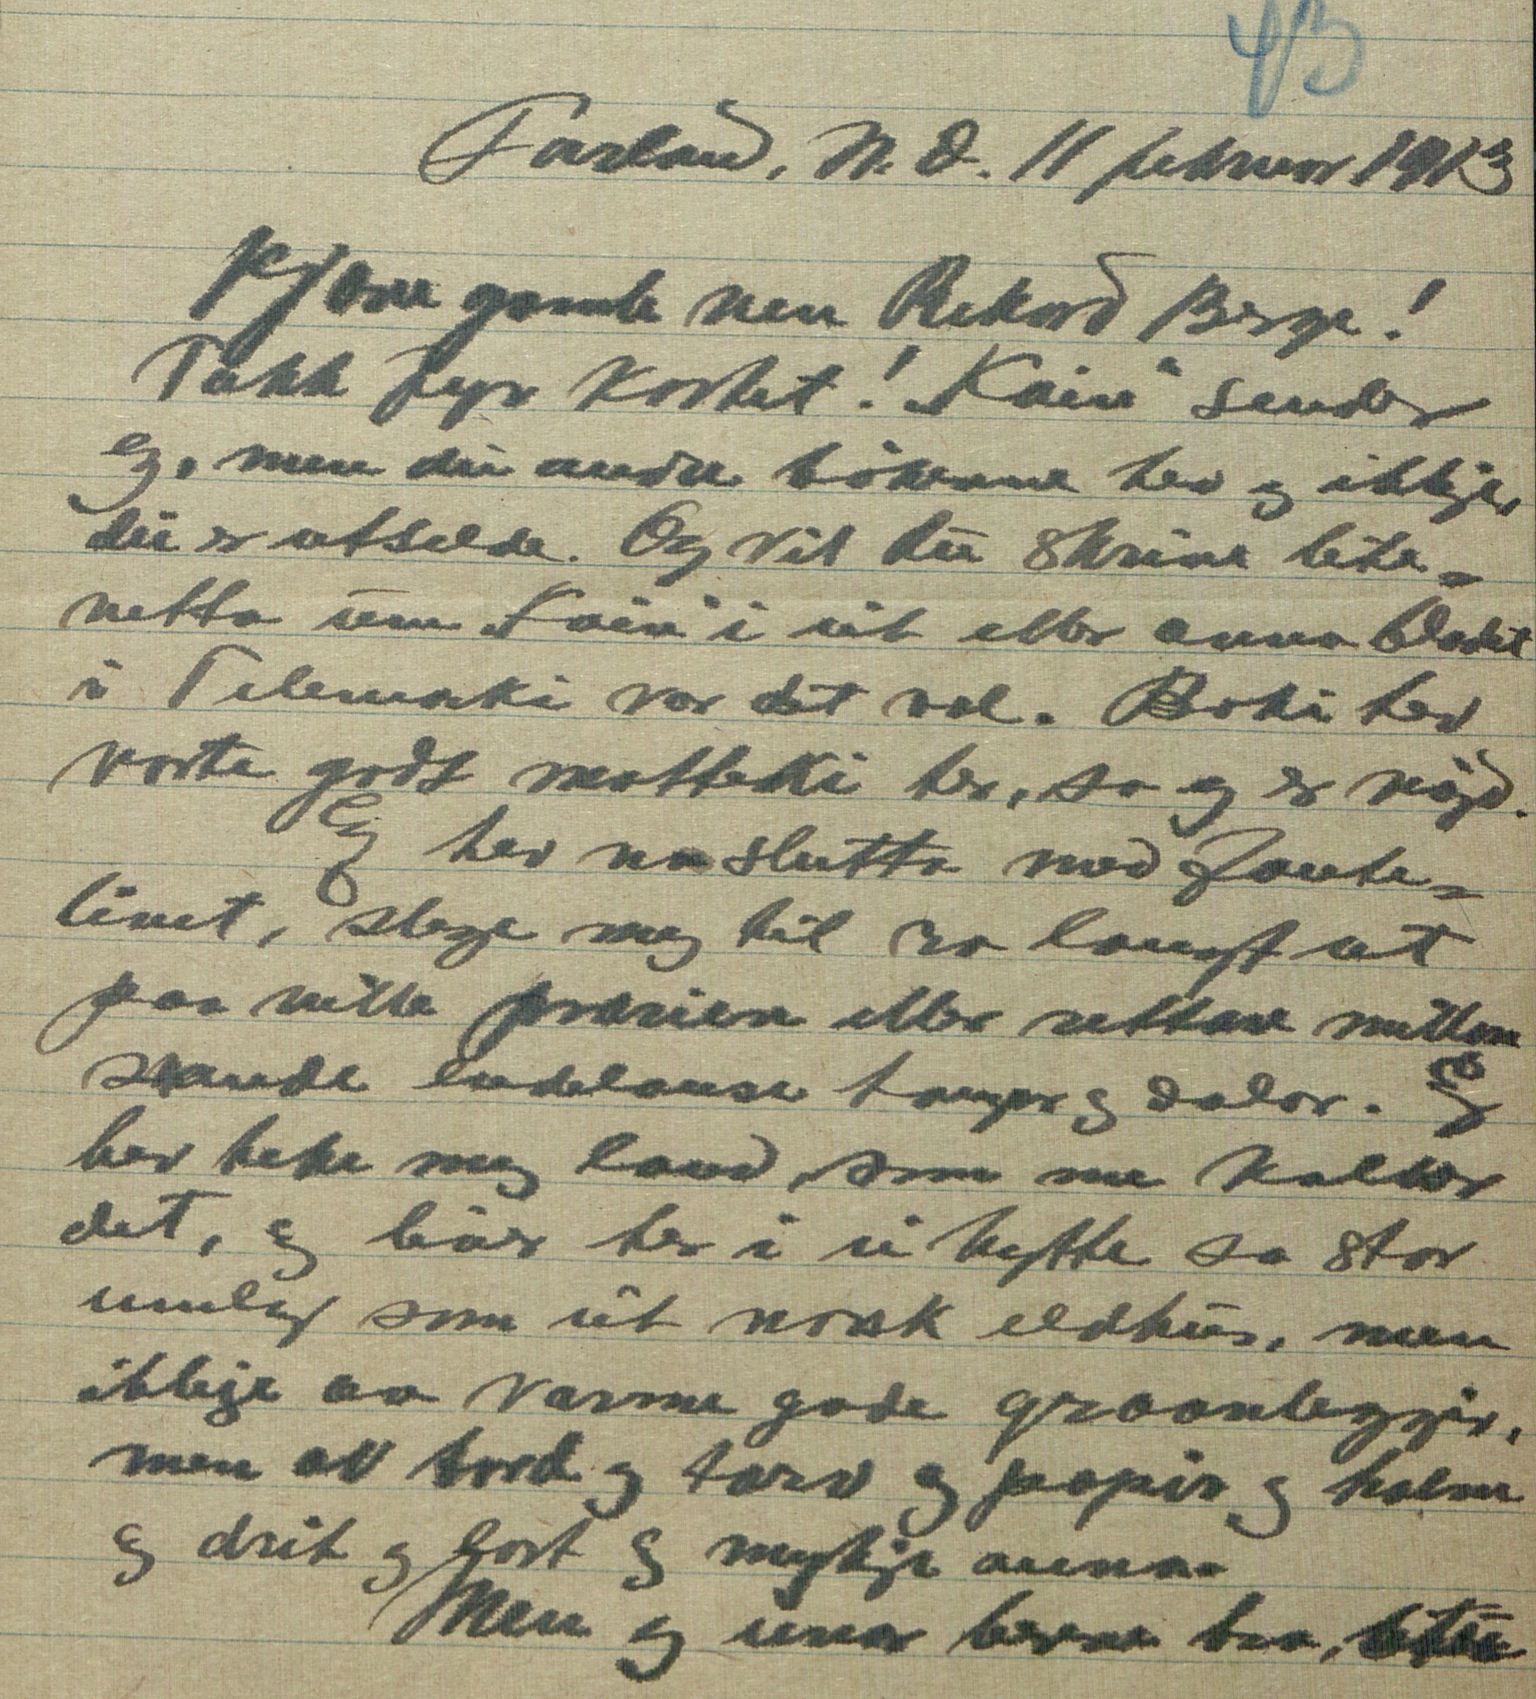 43
Farland, N. D. 11 februar 1913
Kjære gamle ven Rikard Berge!
Takk fyr kortet! "Kain" sender
eg, men dei andre bökerne hev eg ikkje,
dei er utselde. Og vil du skrive lite-
vetta um "Kain" i eit eller anna bladet
i Telemarki var det væl. Boki hev
vorte godt motteki her, so eg er nögd.
Eg hev no slutta med fante-
livet, slege meg til ro langt ut
paa ville prærien eller rettare millom
snaude endelause haugar og dalar. Eg
hev teke meg land, som me kallar
det, og liver her i ei hytte so stor
umlag som eit norsk eldhus, men
ikkje av varme gode granleggjir,
men av bord og torv og papir og halm
og drit og lort og mykje anna.
Men eg unar berre bra,